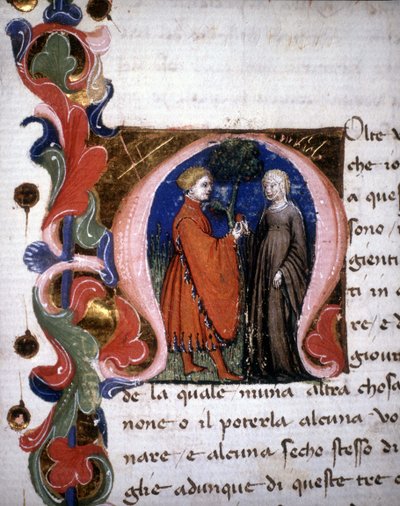 MOlte v
che io
a ques
sono/
gienti
ti in a
re/e d
giour
de la quale niuna altra chosa
none o il poterla alcuna vo
nare/e alcuna secho stesso di
ghie adunque di queste tre